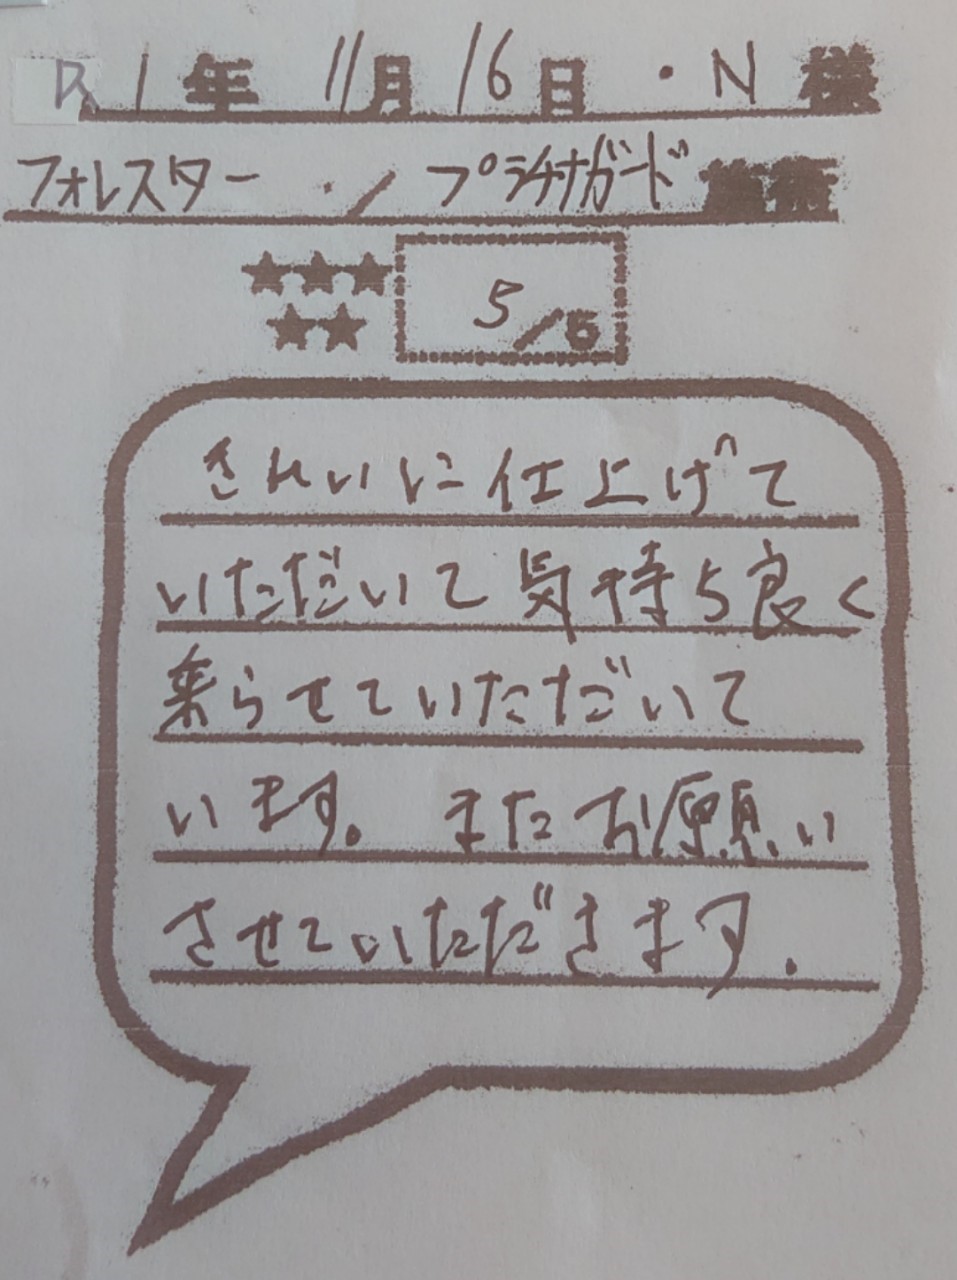 R1年 11月16日 ・N様
フォレスター ・/ プラチナガード施術
★★★
★★
5/5
きれいに仕上げて
いただいて気持ち良く
乗らせていただいて
います。またお願い
させていただきます.